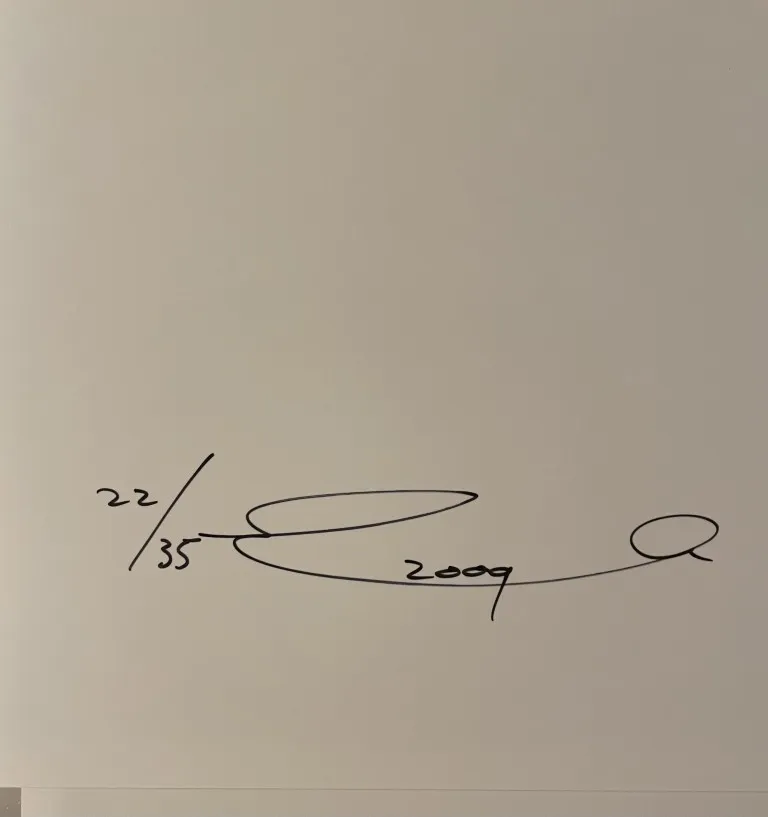 22/35
2009